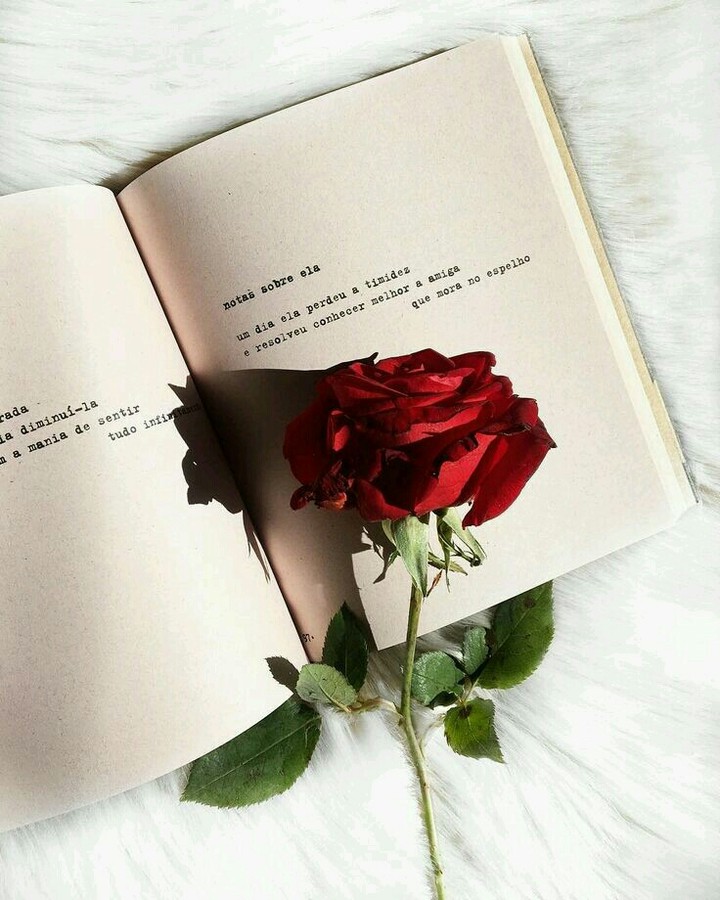 rada
ia diminuí-la
a mania de sentir
tudo
notas sobre ela
um dia ela perdeu a timidez
e resolveu conhecer melhor a amiga
que mora no espelho
37.